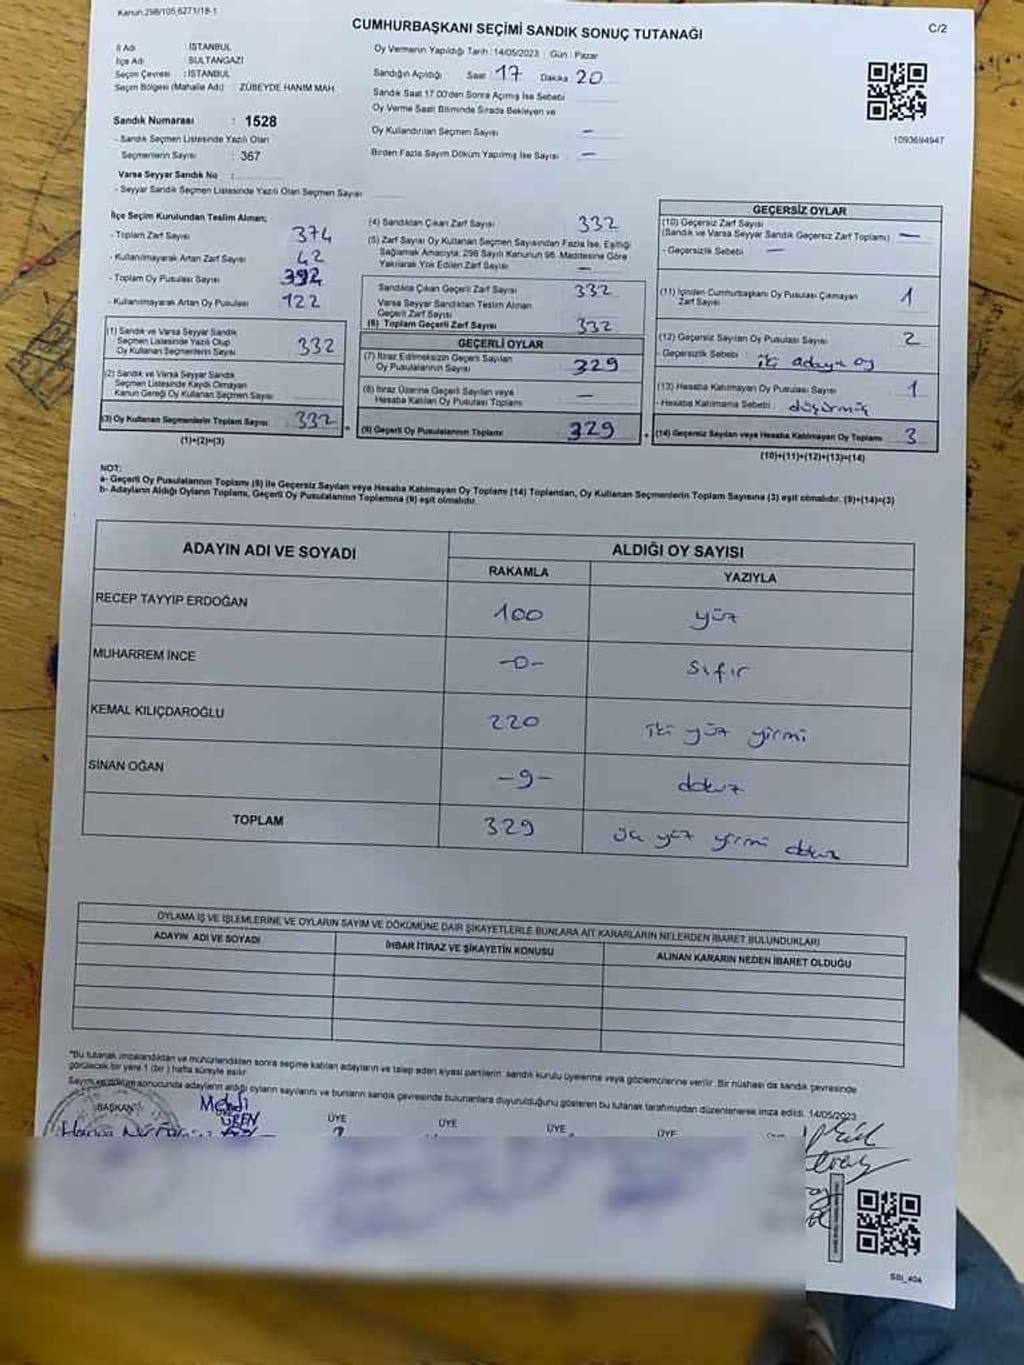 Kanun:298/105,6271/18-1
CUMHURBAŞKANI SEÇİMİ SANDIK SONUÇ TUTANAĞI
C/2
İl Adı : İSTANBUL
İlçe Adı : SULTANGAZİ
Seçim Çevresi : İSTANBUL
Seçim Bölgesi (Mahalle Adı) : ZÜBEYDE HANIM MAH.
Sandık Numarası : 1528
- Sandık Seçmen Listesinde Yazılı Olan
Seçmenlerin Sayısı : 367
Varsa Seyyar Sandık No :
- Seyyar Sandık Seçmen Listesinde Yazılı Olan Seçmen Sayısı
Oy Vermenin Yapıldığı Tarih : 14/05/2023 Gün : Pazar
Sandığın Açıldığı Saat 17 Dakika 20
Sandık Saat 17.00'den Sonra Açılmış İse Sebebi
Oy Verme Saati Bitiminde Sırada Bekleyen ve
Oy Kullandırılan Seçmen Sayısı —
Birden Fazla Sayım Döküm Yapılmış İse Sayısı —
1093694947
İlçe Seçim Kurulundan Teslim Alınan;
- Toplam Zarf Sayısı 374
- Kullanılmayarak Artan Zarf Sayısı 42
- Toplam Oy Pusulası Sayısı
- Kullanılmayarak Artan Oy Pusulası 122
(1) Sandık ve Varsa Seyyar Sandık
Seçmen Listesinde Yazılı Olup
Oy Kullanan Seçmenlerin Sayısı 332
(2) Sandık ve Varsa Seyyar Sandık
Seçmen Listesinde Kayıtlı Olmayan
Kanun Gereği Oy Kullanan Seçmen Sayısı
(3) Oy Kullanan Seçmenlerin Toplam Sayısı 332
(1)+(2)=(3)
(4) Sandıktan Çıkan Zarf Sayısı 332
(5) Zarf Sayısı Oy Kullanan Seçmen Sayısından Fazla İse, Eşitliği
Sağlamak Amacıyla; 298 Sayılı Kanunun 98. Maddesine Göre
Yakılarak Yok Edilen Zarf Sayısı —
Sandıkta Çıkan Geçerli Zarf Sayısı 332
Varsa Seyyar Sandıktan Teslim Alınan
Geçerli Zarf Sayısı
(6) Toplam Geçerli Zarf Sayısı 332
GEÇERLİ OYLAR
(7) İtiraz Edilmeksizin Geçerli Sayılan
Oy Pusulalarının Sayısı 329
(8) İtiraz Üzerine Geçerli Sayılan veya
Hesaba Katılan Oy Pusulası Toplamı —
(9) Geçerli Oy Pusulalarının Toplamı 329
GEÇERSİZ OYLAR
(10) Geçersiz Zarf Sayısı
(Sandık ve Varsa Seyyar Sandık Geçersiz Zarf Toplamı) —
- Geçersizlik Sebebi —
(11) İçinden Cumhurbaşkanı Oy Pusulası Çıkmayan
Zarf Sayısı 1
(12) Geçersiz Sayılan Oy Pusulası Sayısı 2
- Geçersizlik Sebebi : iki adaya oy
(13) Hesaba Katılmayan Oy Pusulası Sayısı 1
- Hesaba Katılmama Sebebi : düşürmüş
(14) Geçersiz Sayılan veya Hesaba Katılmayan Oy Toplamı 3
(10)+(11)+(12)+(13)=(14)
NOT:
a- Geçerli Oy Pusulalarının Toplamı (9) ile Geçersiz Sayılan veya Hesaba Katılmayan Oy Toplamı (14) Toplamları, Oy Kullanan Seçmenlerin Toplam Sayısına (3) eşit olmalıdır. (9)+(14)=(3)
b- Adayların Aldığı Oyların Toplamı, Geçerli Oy Pusulalarının Toplamına (9) eşit olmalıdır.
ADAYIN ADI VE SOYADI
ALDIĞI OY SAYISI
RAKAMLA
YAZIYLA
RECEP TAYYİP ERDOĞAN 100 yüz
MUHARREM İNCE -0- sıfır
KEMAL KILIÇDAROĞLU 220 iki yüz yirmi
SİNAN OĞAN -9- dokuz
TOPLAM 329 üç yüz yirmi dokuz
OYLAMA İŞ VE İŞLEMLERİNE VE OYLARIN SAYIM VE DÖKÜMÜNE DAİR ŞİKAYETLERLE BUNLARA AİT KARARLARIN NELERDEN İBARET BULUNDUKLARI
ADAYIN ADI VE SOYADI
İHBAR İTİRAZ VE ŞİKAYETİN KONUSU
ALINAN KARARIN NEDEN İBARET OLDUĞU
*Bu tutanak imzalandıktan ve mühürlendikten sonra seçime katılan adayların ve talep eden siyasi partilerin sandık kurulu üyelerine veya gözlemcilerine verilir. Bir nüshası da sandık çevresinde
görülecek bir yere 1 (bir) hafta süreyle asılır.
Sayım ve döküm sonucunda adayların aldığı oyların sayılarını ve bunların sandık çevresinde bulunanlara duyurulduğunu gösteren bu tutanak tarafımızdan düzenlenerek imza edildi. 14/05/2023
BAŞKAN
Mehdi
ÜYE
ÜYE
ÜYE
ÜYE
SSI_404